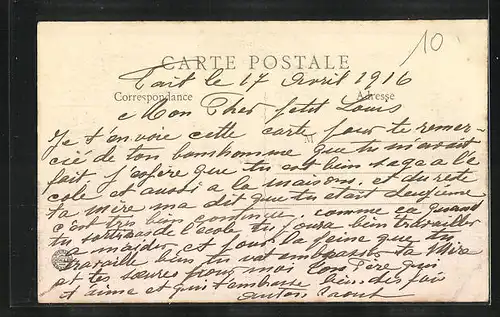 10
CARTE POSTALE
Fait le 17 Avril 1916
Correspondance Adresse
Mon Cher petit Louis
Je t'envoie cette carte pour te remer-
cié de ton bonhomme que tu m'avait
fait j'espère que tu est bien sage a l'é
cole et aussi a la maison, et du reste
ta mère ma dit que tu était deuxième
c'est très bien continue, comme ça quand
tu sortiras de l'école tu poura bien travailler
a maider, et pour la peine que tu
travaille bien tu vat embrasser ta Mère
et tes sœures pour moi Ton Père qui
t'aime et qui t'embrasse bien des fois